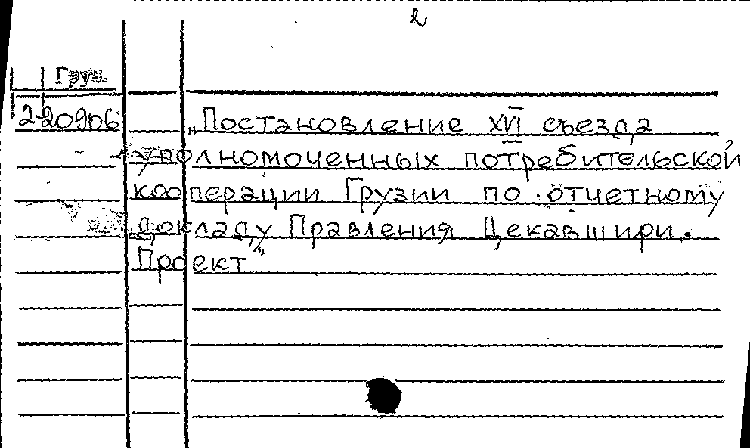 2
Груз.
2-20906 „Постановление XVI съезда
уполномоченных потребительской
кооперации Грузии по отчетному
докладу Правления Цекавшири.
Проект“